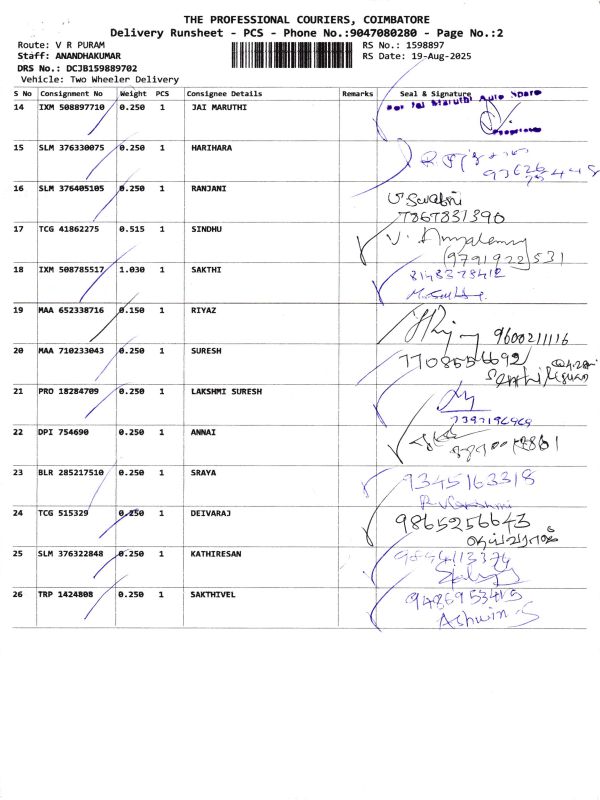 THE PROFESSIONAL COURIERS, COIMBATORE
Delivery Runsheet - PCS - Phone No.:9047080280 - Page No.:2
Route: V R PURAM RS No.: 1598897
Staff: ANANDHAKUMAR RS Date: 19-Aug-2025
DRS No.: DCJB159889702
Vehicle: Two Wheeler Delivery
S No Consignment No Weight PCS Consignee Details Remarks Seal & Signature
14 IXM 508897710 0.250 1 JAI MARUTHI
For Jai Maruthi Auto Spare
15 SLM 376330075 0.250 1 HARIHARA
16 SLM 376405105 0.250 1 RANJANI
7867831390
17 TCG 41862275 0.515 1 SINDHU
(9791922531
18 IXM 508785517 1.030 1 SAKTHI
8148378412
19 MAA 652338716 0.150 1 RIYAZ
9600211116
20 MAA 710233043 0.250 1 SURESH
7708556692
21 PRO 18284709 0.250 1 LAKSHMI SURESH
22 DPI 754690 0.250 1 ANNAI
23 BLR 285217510 0.250 1 SRAYA
9345163318
24 TCG 515329 0.250 1 DEIVARAJ
9865256643
25 SLM 376322848 0.250 1 KATHIRESAN
26 TRP 1424808 0.250 1 SAKTHIVEL
9486953415
Ashwin S